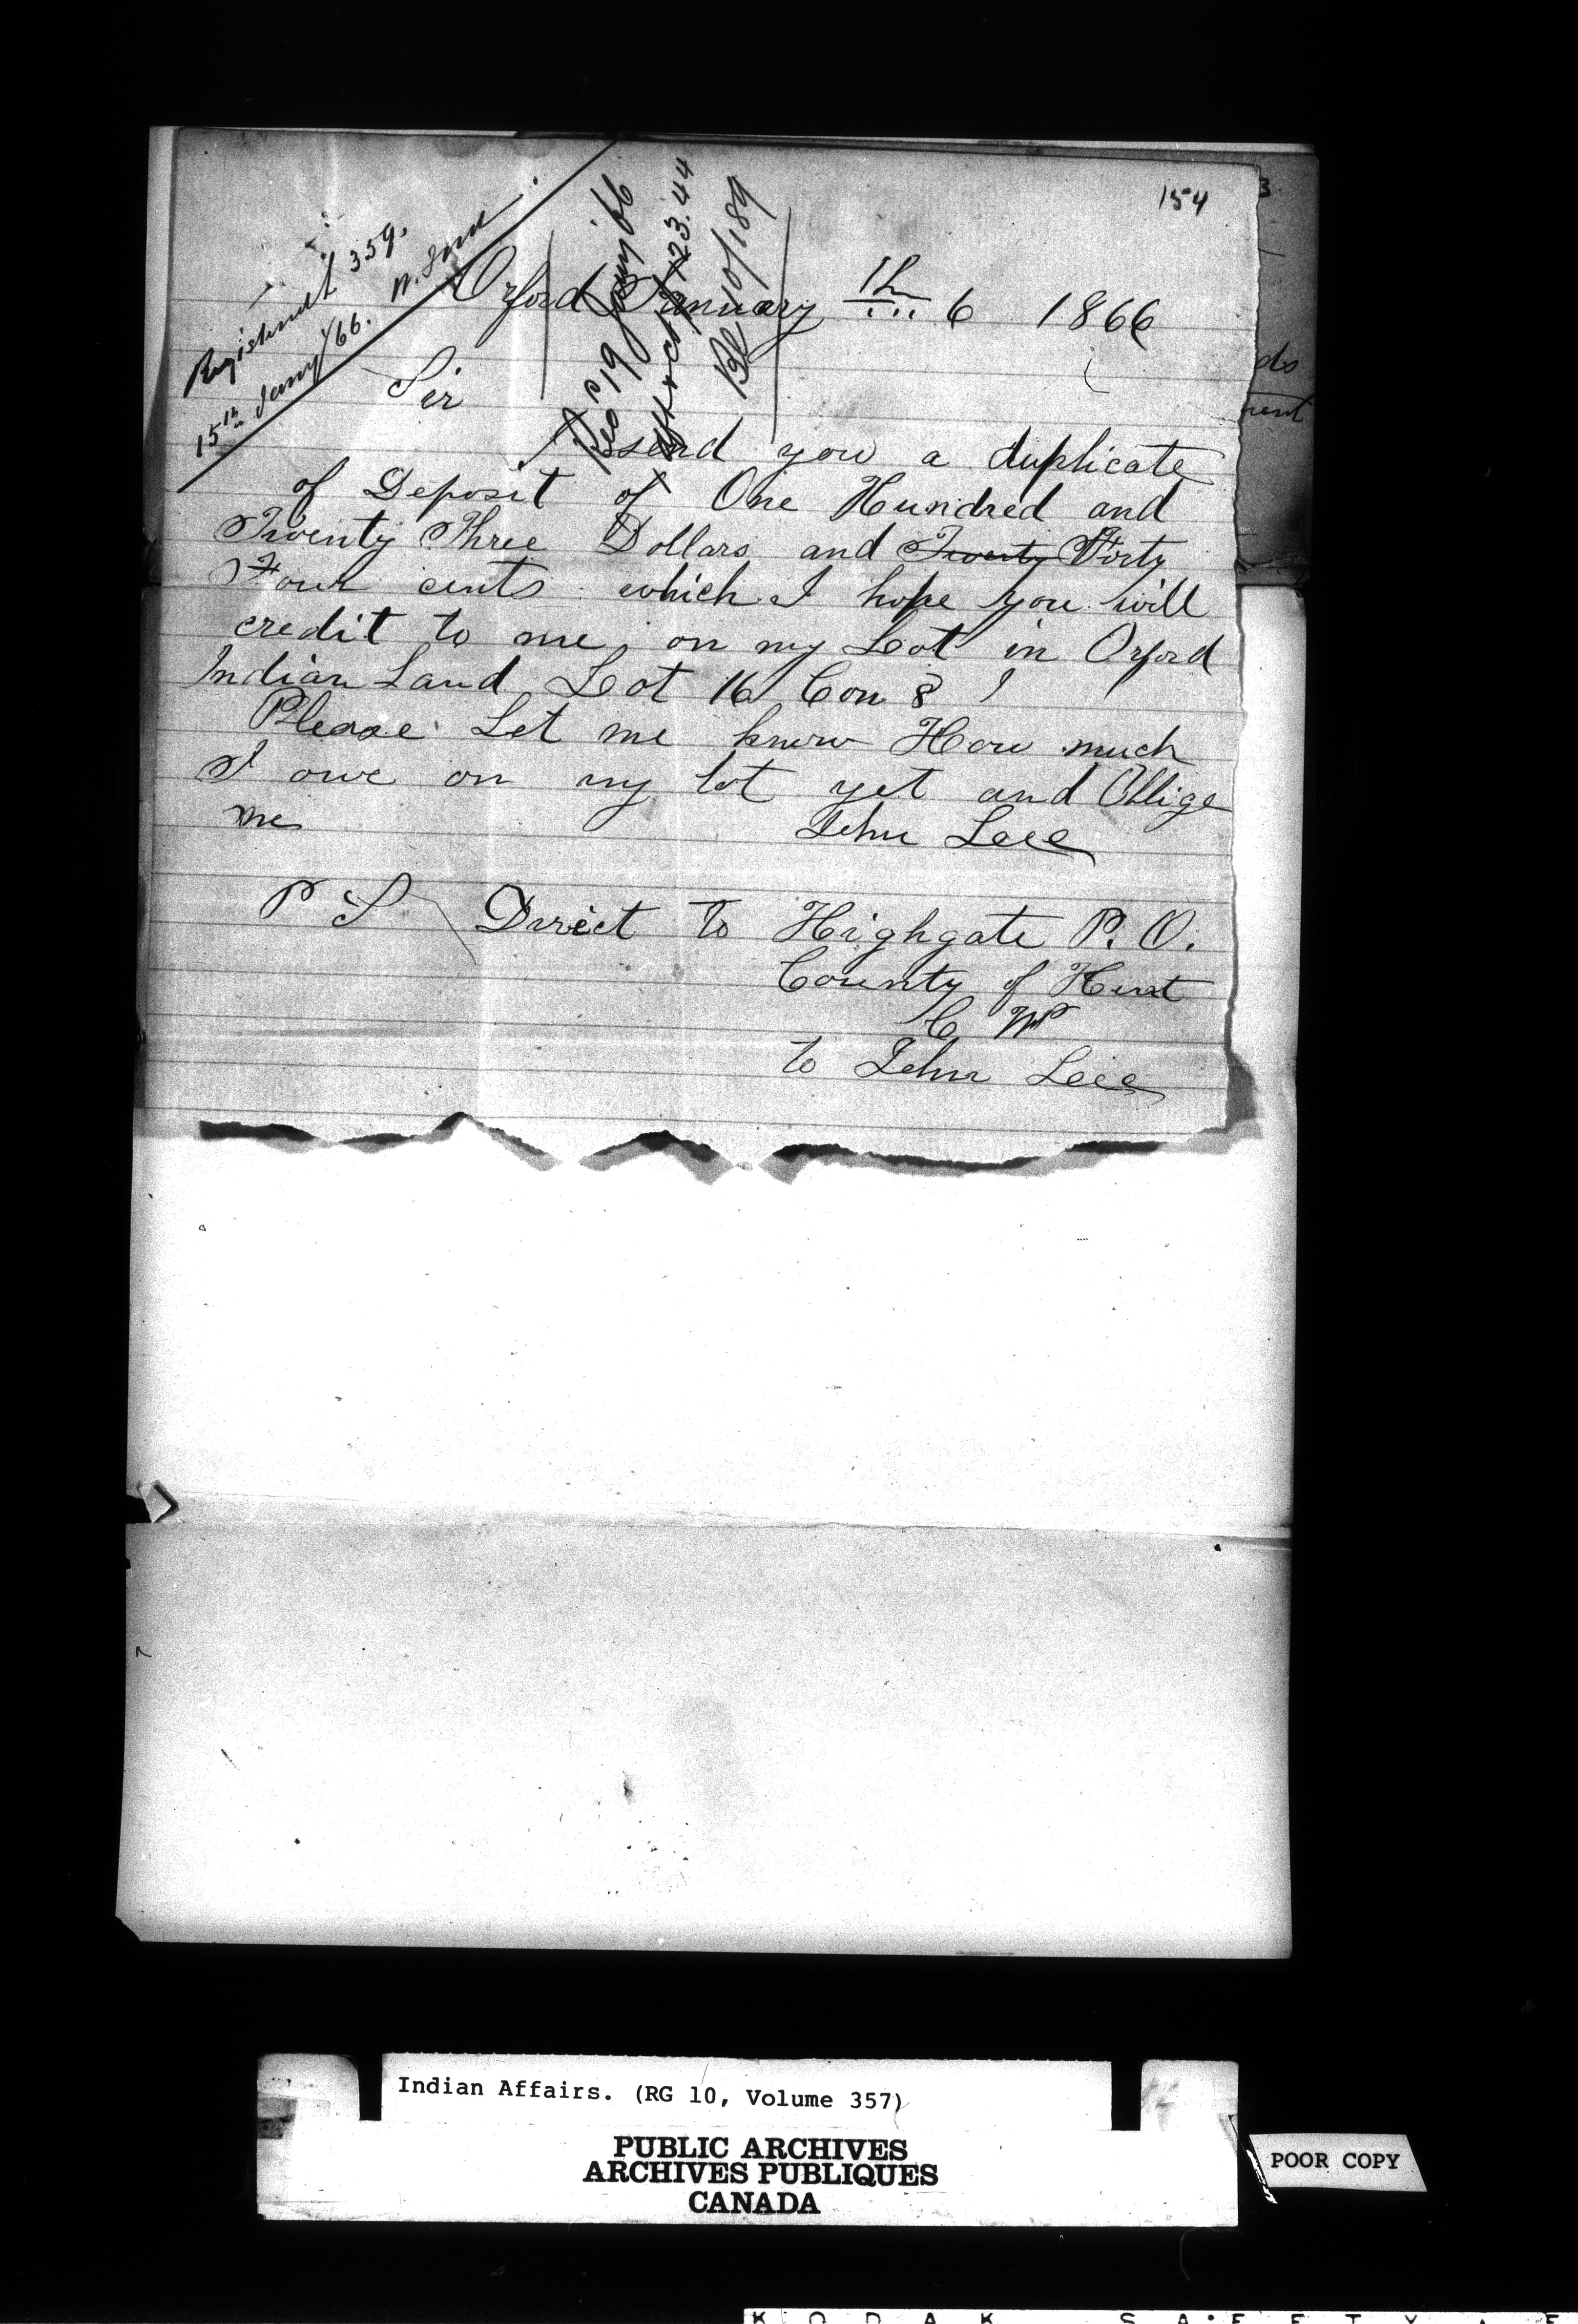 154
Registered 359.
15th Jany/66.
Rec 19 Jany 66
123.44
Bl 10/189
Orford January th 6 1866
Sir
I send you a duplicate
of Deposit of One Hundred and
Twenty Three Dollars and Twenty Forty
Four cents which I hope you will
credit to me on my Lot in Orford
Indian Land Lot 16 Con 8
Please Let me know How much
I owe on my lot yet and Oblige
me John Lee
P S Direct to Highgate P. O.
County of Kent
C W
to John Lee
ds
ment
Indian Affairs. (RG 10, Volume 357)
PUBLIC ARCHIVES
ARCHIVES PUBLIQUES
CANADA
POOR COPY
KODAK SAFETY